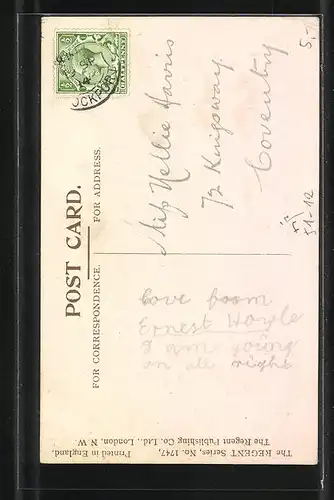 POST CARD.
FOR CORRESPONDENCE.
FOR ADDRESS.
HALFPENNY
Miss Nellie Harris
72 Kingsway
Coventry
love from
Ernest Hoyle
I am going
on all right
The REGENT Series, No. 1747,
The Regent Publishing Co. Ltd., London, N.W.
Printed in England.
5,-
51-12